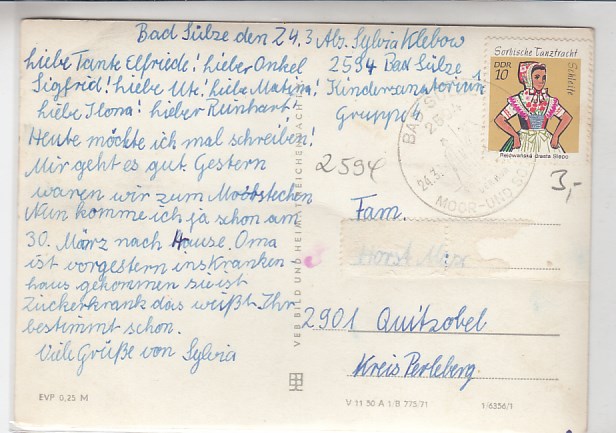 Bad Sülze den 24.3
liebe Tante Elfriede! lieber Onkel
Sigfrid! liebe Ute! liebe Martina!
liebe Ilona! lieber Reinhart!
Heute möchte ich mal schreiben!
Mir geht es gut. Gestern
waren wir zum Moorstechen
Nun komme ich ja schon am
30. März nach Hause. Oma
ist vorgestern ins Kranken-
haus gekommen sie ist
Zuckerkrank das weißt Ihr
bestimmt schon.
Viele Grüße von Sylvia
EVP 0,25 M
VEB BILD UND HEIMAT REICHENBACH
Abs. Sylvia Klebow
2594 Bad Sülze
Kindersanatorium
Gruppe 4
Sorbische Tanztracht
DDR
10
Schleife
Rejowanska drasta Slepo
BAD
24.3.
MOOR- UND
2594
3,-
Fam.
Horst
2901 Quitzobel
Kreis Perleberg.
V 11 50 A 1/B 775/71
1/6356/1